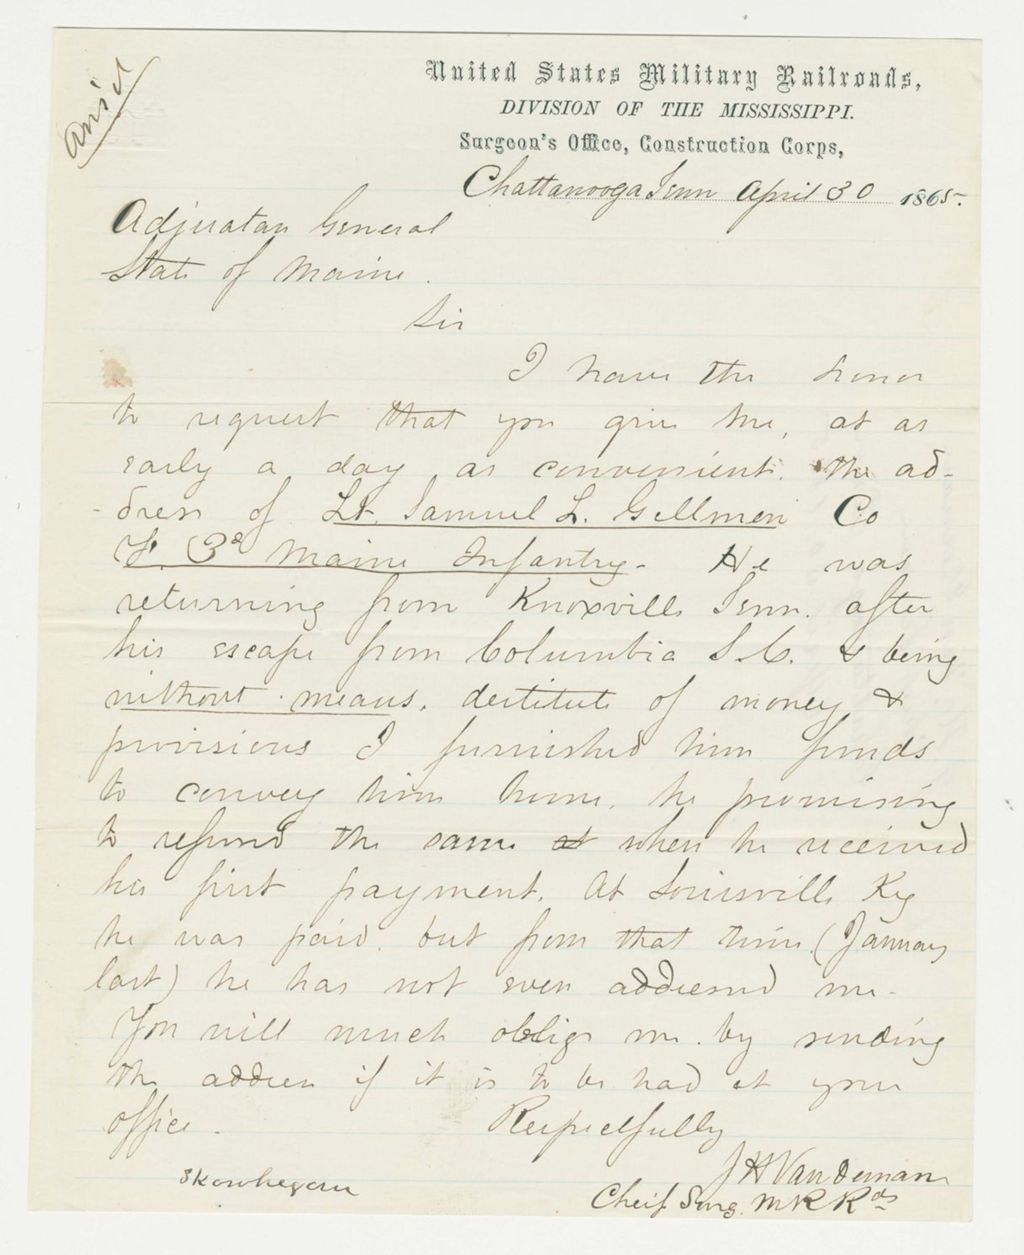 Ansd
United States Military Railroads,
DIVISION OF THE MISSISSIPPI.
Surgeon's Office, Construction Corps,
Chattanooga Tenn April 30 1865.
Adjutatan General
State of Maine.
Sir
I have the honor
to request that you give me, at as
early a day as convenient. the ad-
-dress of Lt. Samuel L. Gillman Co
F. 3d Maine Infantry. He was
returning from Knoxville Tenn. after
his escape from Columbia S.C. & being
without means, destitute of money &
provisions I furnished him funds
to convey him home, he promising
to refund the same at when he received
his first payment. At Louisville Ky
he was paid. but from that time (January
last) he has not even addressed me.
You will much oblige me. by sending
the address if it is to be had at your
office. Respectfully
J H Van Deman
Cheif Surg. M R Rds
Skowhegan